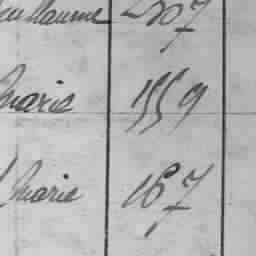 Guillaume 2507
Marie 1559
Marie 167